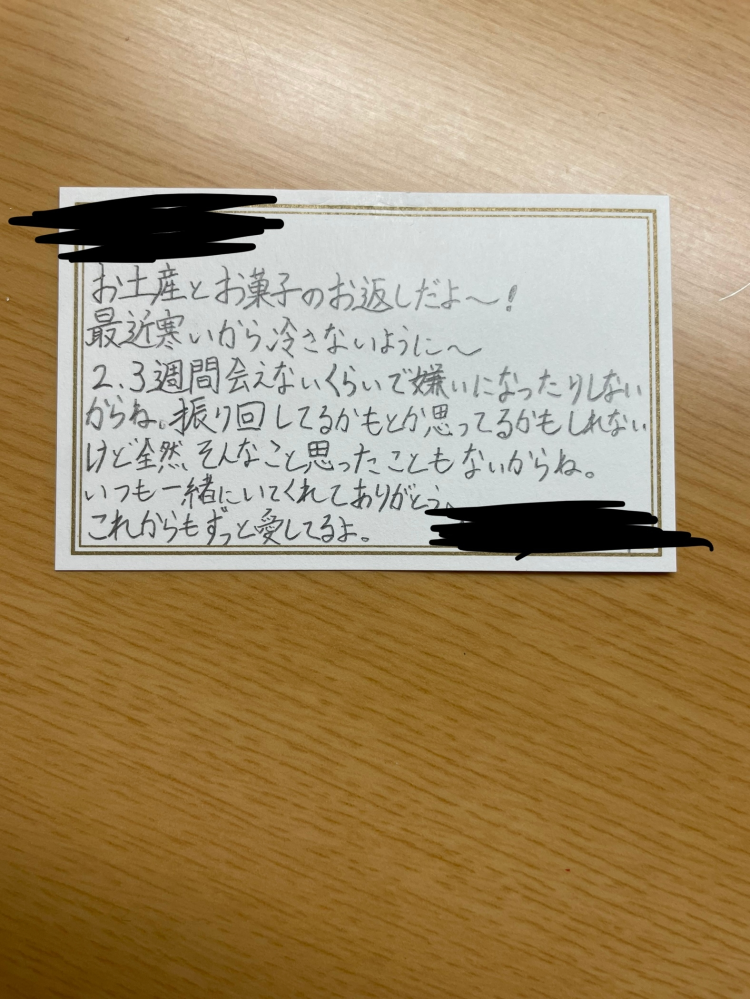 お土産とお菓子のお返しだよ〜!
最近寒いから冷さないように〜
2、3週間会えないくらいで嫌いになったりしない
からね。振り回してるかもとか思ってるかもしれない
けど全然そんなこと思ったこともないからね。
いつも一緒にいてくれてありがとう、
これからもずっと愛してるよ。